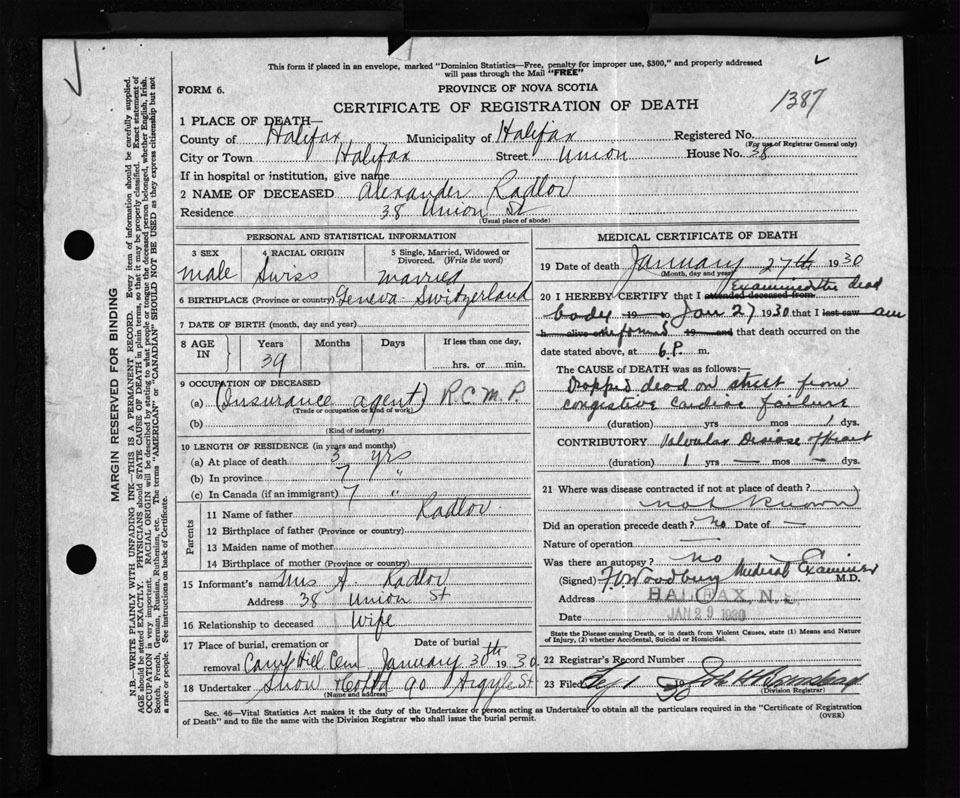 This form if placed in an envelope, marked "Dominion Statistics—Free, penalty for improper use, $300," and properly addressed
will pass through the Mail "FREE"
FORM 6.
PROVINCE OF NOVA SCOTIA
CERTIFICATE OF REGISTRATION OF DEATH
1387
1 PLACE OF DEATH—
County of Halifax Municipality of Halifax Registered No.
(For use of Registrar General only)
City or Town Halifax Street Union House No. 38
If in hospital or institution, give name
2 NAME OF DECEASED Alexander Radlov
Residence 38 Union St
(Usual place of abode)
PERSONAL AND STATISTICAL INFORMATION
3 SEX 4 RACIAL ORIGIN 5 Single, Married, Widowed or
Divorced. (Write the word)
Male Swiss Married
6 BIRTHPLACE (Province or country) Geneva Switzerland
7 DATE OF BIRTH (month, day and year)
8 AGE IN Years Months Days If less than one day,
39 hrs. or min.
9 OCCUPATION OF DECEASED
(a) (Insurance agent) R.C.M.P.
(Trade or occupation or kind of work)
(b)
(Kind of industry)
10 LENGTH OF RESIDENCE (in years and months)
(a) At place of death 3 yrs
(b) In province 7 "
(c) In Canada (if an immigrant) 7 "
Parents
11 Name of father Radlov
12 Birthplace of father (Province or country)
13 Maiden name of mother
14 Birthplace of mother (Province or country)
15 Informant's name Mrs A. Radlov
Address 38 Union St
16 Relationship to deceased Wife
17 Place of burial, cremation or Date of burial
removal Camp Hill Cem January 30th 1930
18 Undertaker Snow & Co Ltd 90 Argyle St
(Name and address)
MEDICAL CERTIFICATE OF DEATH
19 Date of death January 27th 1930
(Month, day and year)
Examined the dead
20 I HEREBY CERTIFY that I attended deceased from
body 19 to Jan 27 1930 that I last saw am
h alive on informed 19 and that death occurred on the
date stated above, at 6.P. m.
The CAUSE OF DEATH was as follows:—
Dropped dead on street from
congestive cardiac failure
(duration) yrs mos 1 dys.
CONTRIBUTORY Valvular Disease of heart
(duration) 1 yrs — mos — dys.
21 Where was disease contracted if not at place of death?
not known
Did an operation precede death? no Date of —
Nature of operation —
Was there an autopsy? no
(Signed) Woodbury Medical Examiner M.D.
Address HALIFAX, N.S.
Date JAN 29 1930
State the Disease causing Death, or in death from Violent Causes, state (1) Means and Nature
of Injury, (2) whether Accidental, Suicidal or Homicidal.
22 Registrar's Record Number
23 Filed 19 30
(Division Registrar)
Sec. 46—Vital Statistics Act makes it the duty of the Undertaker or person acting as Undertaker to obtain all the particulars required in the "Certificate of Registration
of Death" and to file the same with the Division Registrar who shall issue the burial permit.
(OVER)
MARGIN RESERVED FOR BINDING
N.B.—WRITE PLAINLY WITH UNFADING INK—THIS IS A PERMANENT RECORD. Every item of information should be carefully supplied.
AGE should be stated EXACTLY. PHYSICIANS should STATE CAUSE OF DEATH in plain terms, so that it may be properly classified. Exact statement of
OCCUPATION is very important. RACIAL ORIGIN will be described by stating to what people or tongue the deceased person belonged, whether English, Irish,
Scotch, French, German, Russian, Ruthenian, etc. The terms "AMERICAN" or "CANADIAN" SHOULD NOT BE USED as they express citizenship but not
a race or people. See instructions on back of Certificate.